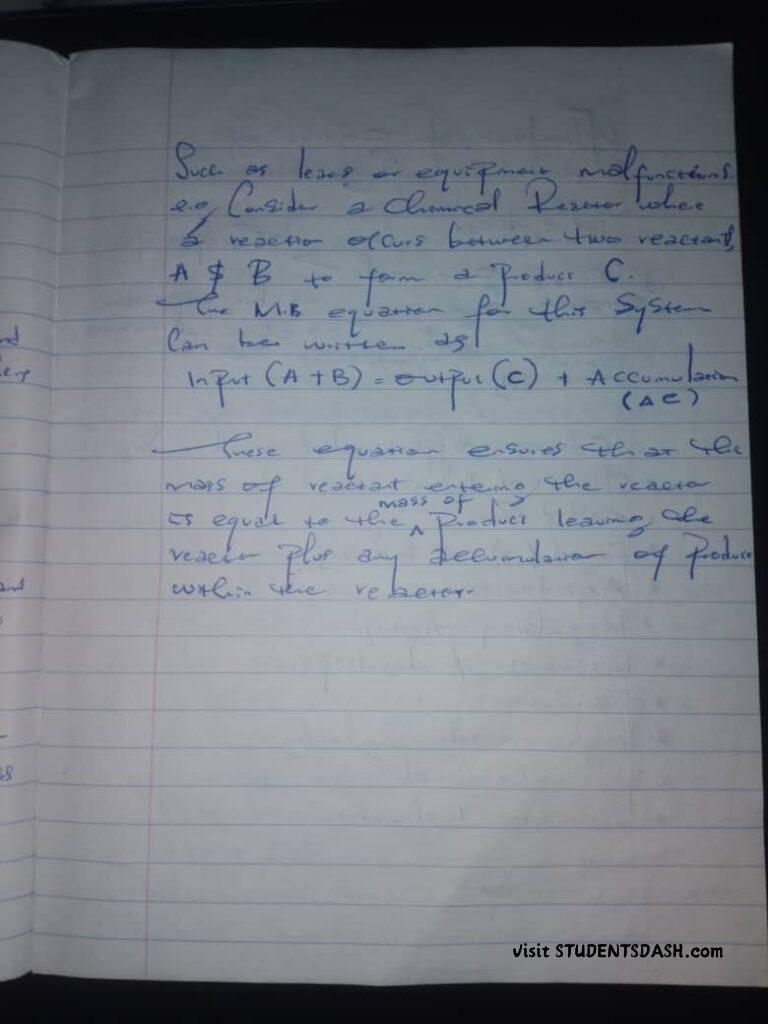 Such as leaks or equipment malfunctions.
e.g Consider a Chemical Reactor where
a reaction occurs between two reactants,
A & B to form a product C.
- The M.B equation for this System
Can be written as
Input (A + B) = output (C) + Accumulation
(Δ C)
- These equation ensures that the
mass of reactant entering the reactor
mass of
is equal to the ^ product leaving the
reactor plus any accumulation of product
within the reactor.
nd
and
ss
Visit STUDENTSDASH.com